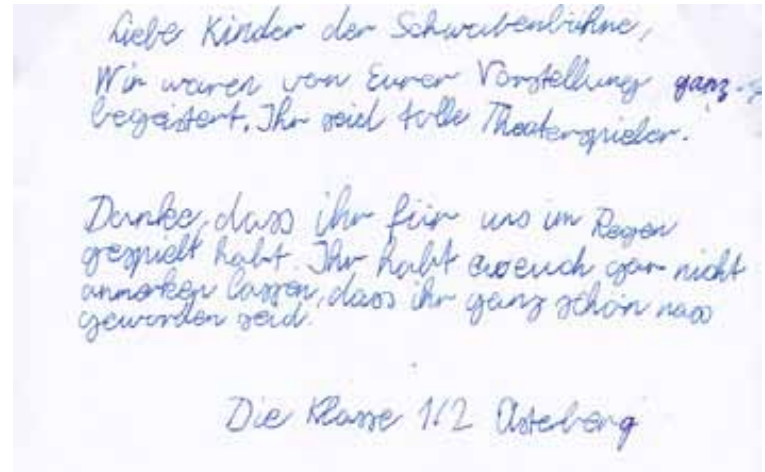 Liebe Kinder der Schwabenbühne,
Wir waren von Eurer Vorstellung ganz
begeistert. Ihr seid tolle Theaterspieler.
Danke, dass ihr für uns im Regen
gespielt habt. Ihr habt euch gar nicht
anmerken lassen, dass ihr ganz schön nass
geworden seid.
Die Klasse 1/2 Osterberg